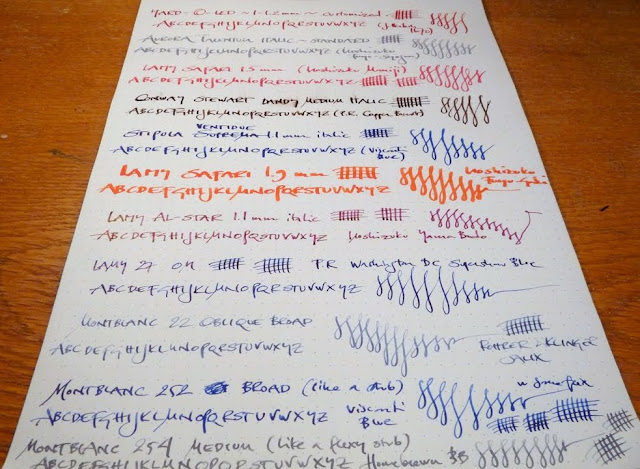 YARD-O-LED ~ 1.1-1.2mm ~ customized
ABCDEFGHIJKLMNOPQRSTUVWXYZ
AURORA TALENTUM ITALIC ~ STANDARD
ABCDEFGHIJKLMNOPQRSTUVWXYZ
LAMY SAFARI 1.5 mm (Iroshizuku Momiji)
ABCDEFGHIJKLMNOPQRSTUVWXYZ
CONWAY STEWART DANDY MEDIUM ITALIC
ABCDEFGHIJKLMNOPQRSTUVWXYZ (P.R. Copper Burst)
VENTIDUE
STIPULA SUPREMA 1.1 mm italic
ABCDEFGHIJKLMNOPQRSTUVWXYZ (Visconti Blue)
LAMY SAFARI 1.9 mm Iroshizuku
ABCDEFGHIJKLMNOPQRSTUVWXYZ
LAMY AL-STAR 1.1 mm italic
ABCDEFGHIJKLMNOPQRSTUVWXYZ Iroshizuku Yama Budo
LAMY 27 OM P.R. Washington DC Blue
ABCDEFGHIJKLMNOPQRSTUVWXYZ
MONTBLANC 22 OBLIQUE BROAD
ABCDEFGHIJKLMNOPQRSTUVWXYZ
ROHRER & KLINGER
SALIX
MONTBLANC 252 BROAD (like a stub)
ABCDEFGHIJKLMNOPQRSTUVWXYZ Visconti
Blue
MONTBLANC 254 MEDIUM (like a flexy stub)
ABCDEFGHIJKLMNOPQRSTUVWXYZ Homebrown